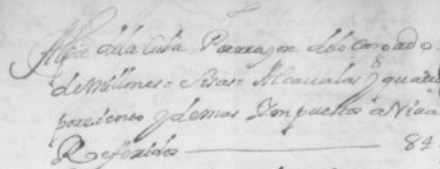 dela Cassa Por razon delo cargado
de Millones = Sisas = Alcavalas y quatro
por ciento y demas Impuestos a Viva
Referidos 84